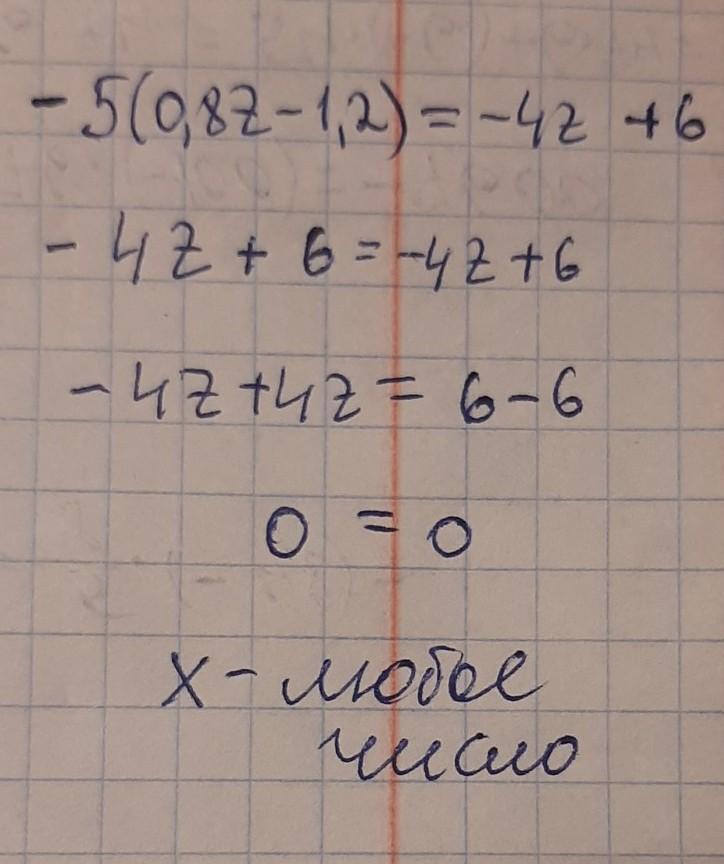 - 5(0,8z-1,2)=-4z +6
- 4z + 6=-4z+6
-4z+4z= 6-6
0 = 0
x- любое
число